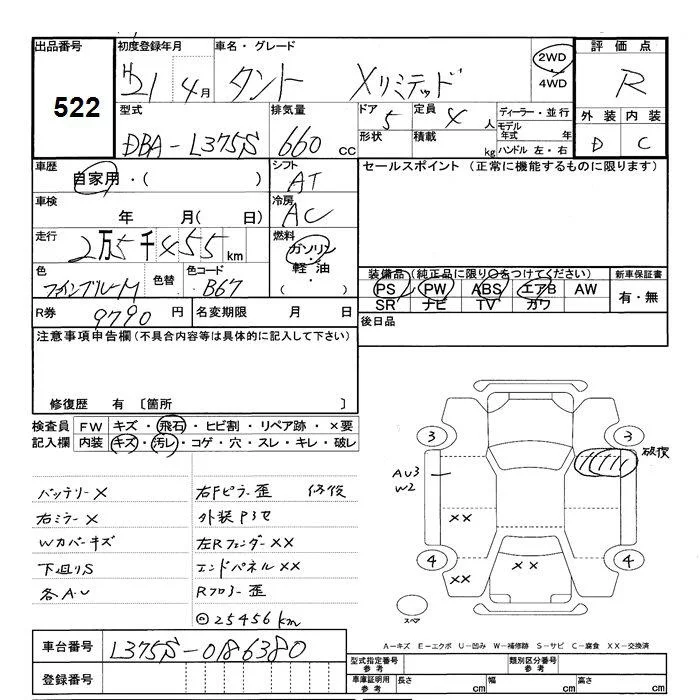 出品番号 初度登録年月 車名・グレード 2WD 評価点
522
H21 4月 タント Xリミテッド 4WD R
型式 排気量 ドア 定員 ディーラー・並行 外装 内装
DBA-L375S 660cc 5 4人 モデル年式 年 D C
形状 積載 kg ハンドル 左・右
車歴 シフト セールスポイント(正常に機能するものに限ります)
自家用・( ) AT
車検 冷房
年 月( 日) AC
走行 燃料
2万5千455km ガソリン・
軽油・
( )
色 色替 色コード 装備品(純正品に限り○をつけてください) 新車保証書
ファインブルーM B67 PS PW ABS エアB AW 有・無
SR ナビ TV カワ
R券 9790円 名変期限 月 日 後日品
注意事項申告欄(不具合内容等は具体的に記入して下さい)
修復歴 有 〔箇所 〕
検査員 FW キズ・飛石・ヒビ割・リペア跡・×要
記入欄 内装 キズ・汚レ・コゲ・穴・スレ・キレ・破レ
バッテリー× 右Fピラー歪 修復
右ミラー× 外装Pヨセ
Wカバーキズ 左Rフェンダー××
下廻りS エンドパネル××
各A・U Rフロアー歪
◎25456km
3 3
AU3
W2
××
4 4
××
××
スペア
A-キズ E-エクボ U-凹み W-補修跡 S-サビ C-腐食 XX-交換済
車台番号 L375S-0186380
登録番号
型式指定番号 参考 類別区分番号 参考
車庫証明用 参考 長さ cm 幅 cm 高さ cm